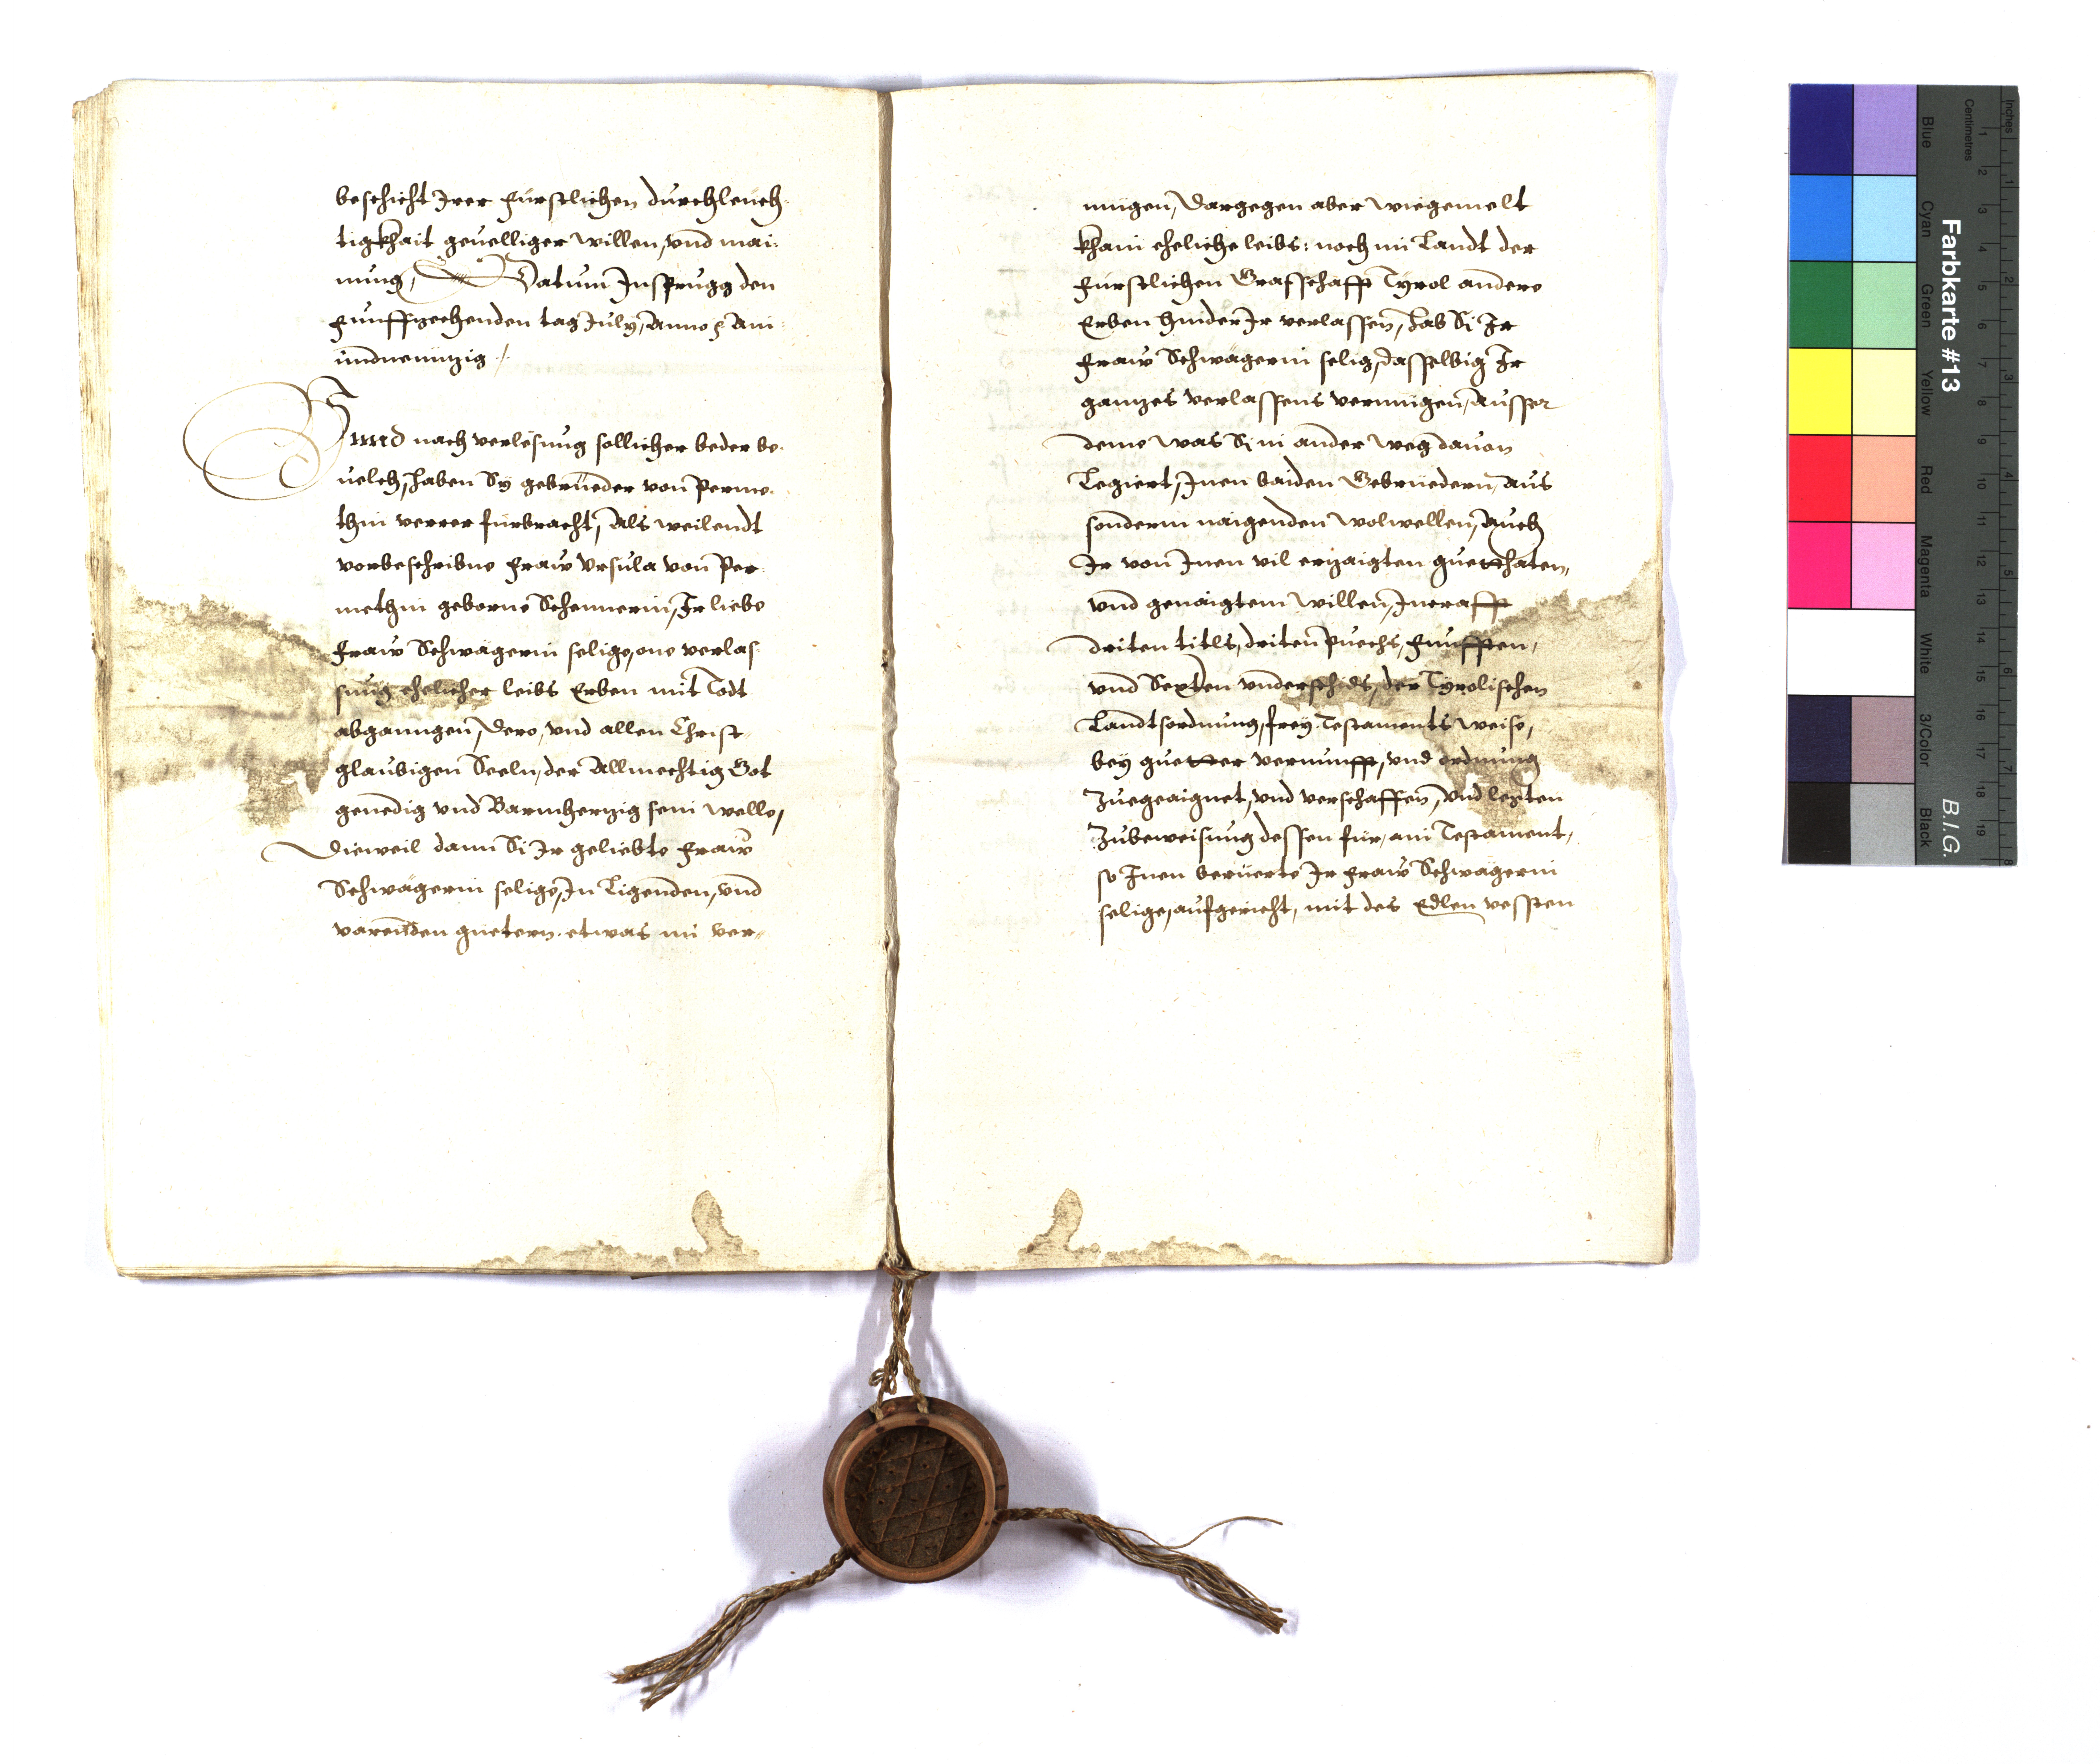 beschicht Irer fürstlichen durchleuch¬
tigkhait geuelliger willen, vnd mai¬
nung, Datum Insprugg den
funffzechenden tag July, Anno ꝛc Ain
undneunzig ./
Vnnd nach verlesung sollicher beder be¬
uelch, haben Sÿ gebrüeder von Perme¬
thin verrer fürbracht, Als weilendt
vorbeschribne fraw Vrsula von Per¬
methin geborne Schennerin, Ir liebe
fraw Schwägerin selige, one verlas¬
sung ehelicher leibs Erben mit Todt
abganngen, dero, vnd allen Christ¬
glaubigen Seeln, der Allmechtig Got
genedig vnd Barmherzig sein welle,
Dieweil dann Si Ir geliebte fraw
Schwägerin selige, In Ligenden, vnd
varennden güetern etwas im ver¬
mügen, Dargegen aber wiegemelt
khain eheliche leibs: noch im Landt der
fürstlichen Grafschafft Tyrol andere
Erben hinder Ir verlassen, hab Si Ir
fraw Schwägerin selig, dasselbig Ir
ganzes verlassens vermügen, Ausser
deme was Si in ander weg dauon
Legiert, Inen baiden Gebrüedern, Aus
sonderm naigenden wolwellen, Auch
Ir von Inen vil erzaigten guetthaten,
vnd genaigtem willen, Incrafft
driten titls, driten Puechs, funfften,
vnd Sexten vnderschids, der Tyrolischen
Landtsordnung, frey Testaments weise,
bey guetter vernunfft, vnd ordnung
Zuegeaignet, vnd verschaffen, Vnd lexten
Zubeweisung dessen für, ain Testament,
so Inen berüerte Ir fraw Schwägerin
selige, aufgericht, mit des Edlen vessten
Farbkarte #13
B.I.G.
Inches
Centimetres
1 2 3 4 5 6 7 8 9 10 11 12 13 14 15 16 17 18 19
1 2 3 4 5 6 7 8
Blue
Cyan
Green
Yellow
Red
Magenta
White
3/Color
Black